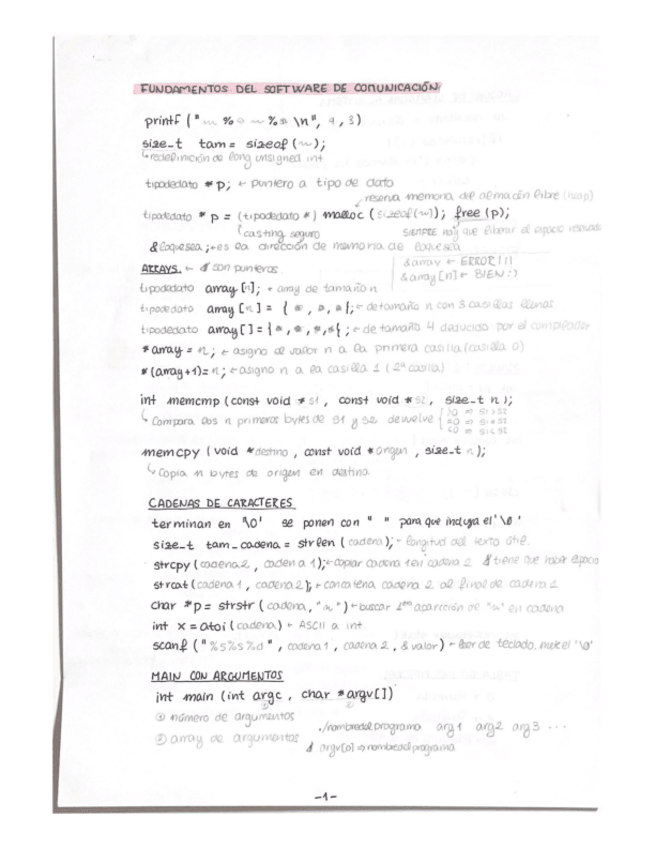 FUNDAMENTOS DEL SOFTWARE DE COMUNICACIÓN
printf (" ~ % ~ % \n", 4, 3)
size_t tam = sizeof (~);
redefinición de long unsigned int
tipodedato *p; ← puntero a tipo de dato
reserva memoria del almacén libre (heap)
tipodedato * p = (tipodedato *) malloc (sizeof(~)); free (p);
casting seguro SIEMPRE hay que liberar el espacio reservado
&loquesea; ← es la dirección de memoria de loquesea
&array ← ERROR!!!
&array[n] ← BIEN :)
ARRAYS. ← son punteros
tipodedato array [n]; ← array de tamaño n
tipodedato array [n] = { *, *, * }; ← de tamaño n con 3 casillas llenas
tipodedato array [] = { *, *, *, * }; ← de tamaño 4 deducido por el compilador
*array = n; ← asigno el valor n a la primera casilla (casilla 0)
*(array+1) = n; ← asigno n a la casilla 1 (2ª casilla)
int memcmp (const void * s1, const void * s2, size_t n);
Compara los n primeros bytes de s1 y s2 devuelve
>0 ⇒ s1>s2
=0 ⇒ s1=s2
<0 ⇒ s1<s2
memcpy (void *destino, const void * origen, size_t n);
Copia n bytes de origen en destino
CADENAS DE CARACTERES
terminan en '\0' se ponen con " " para que incluya el '\0'
size_t tam_cadena = strlen (cadena); ← longitud del texto útil.
strcpy (cadena2, cadena 1); ← copiar cadena 1 en cadena 2 tiene que haber espacio
strcat (cadena1, cadena2); ← concatena cadena 2 al final de cadena 1
char *p = strstr (cadena, "~") ← buscar 1era aparición de "~" en cadena
int x = atoi (cadena) ← ASCII a int
scanf ("%s%s%d", cadena1, cadena2, &valor) ← leer de teclado, mete el '\0'
MAIN CON ARGUMENTOS
int main (int argc, char *argv[])
① número de argumentos
./nombredelprograma arg1 arg2 arg3 ...
② array de argumentos
argv[0] ⇒ nombredelprograma
-1-